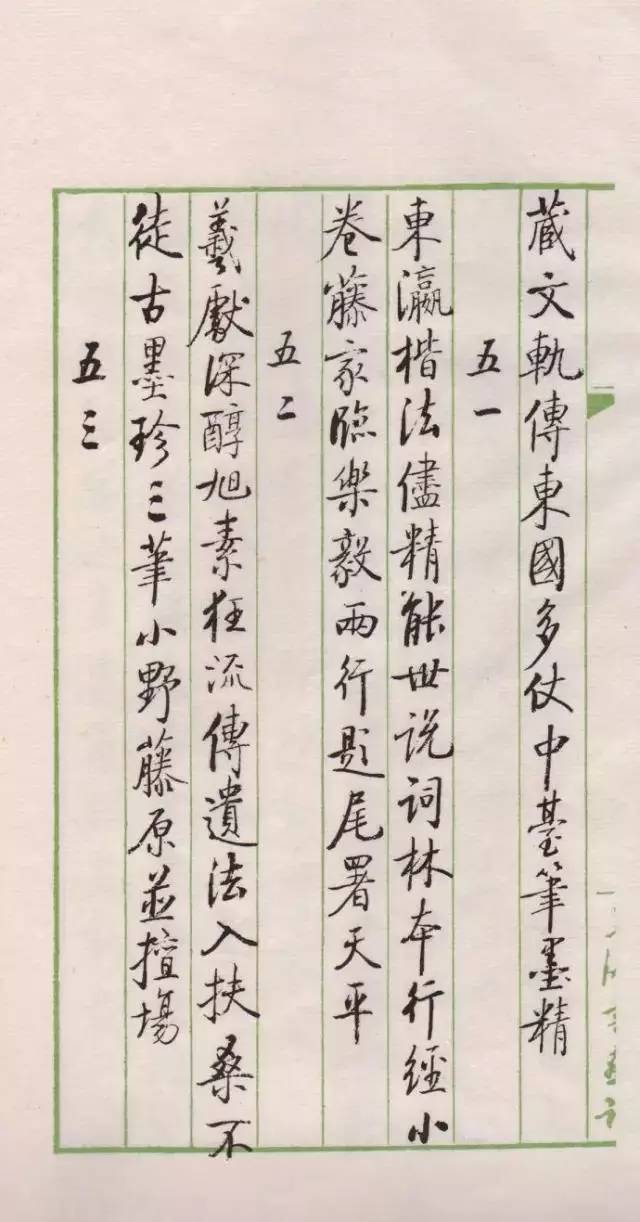 蔵文軌傳東國多仗中臺筆墨精
五一
東瀛楷法儘精能世说词林本行經小
卷藤家臨樂毅兩行題尾署天平
五二
羲獻深醇旭素狂流傳遺法入扶桑不
徒古墨珍三筆小野藤原並擅場
五三